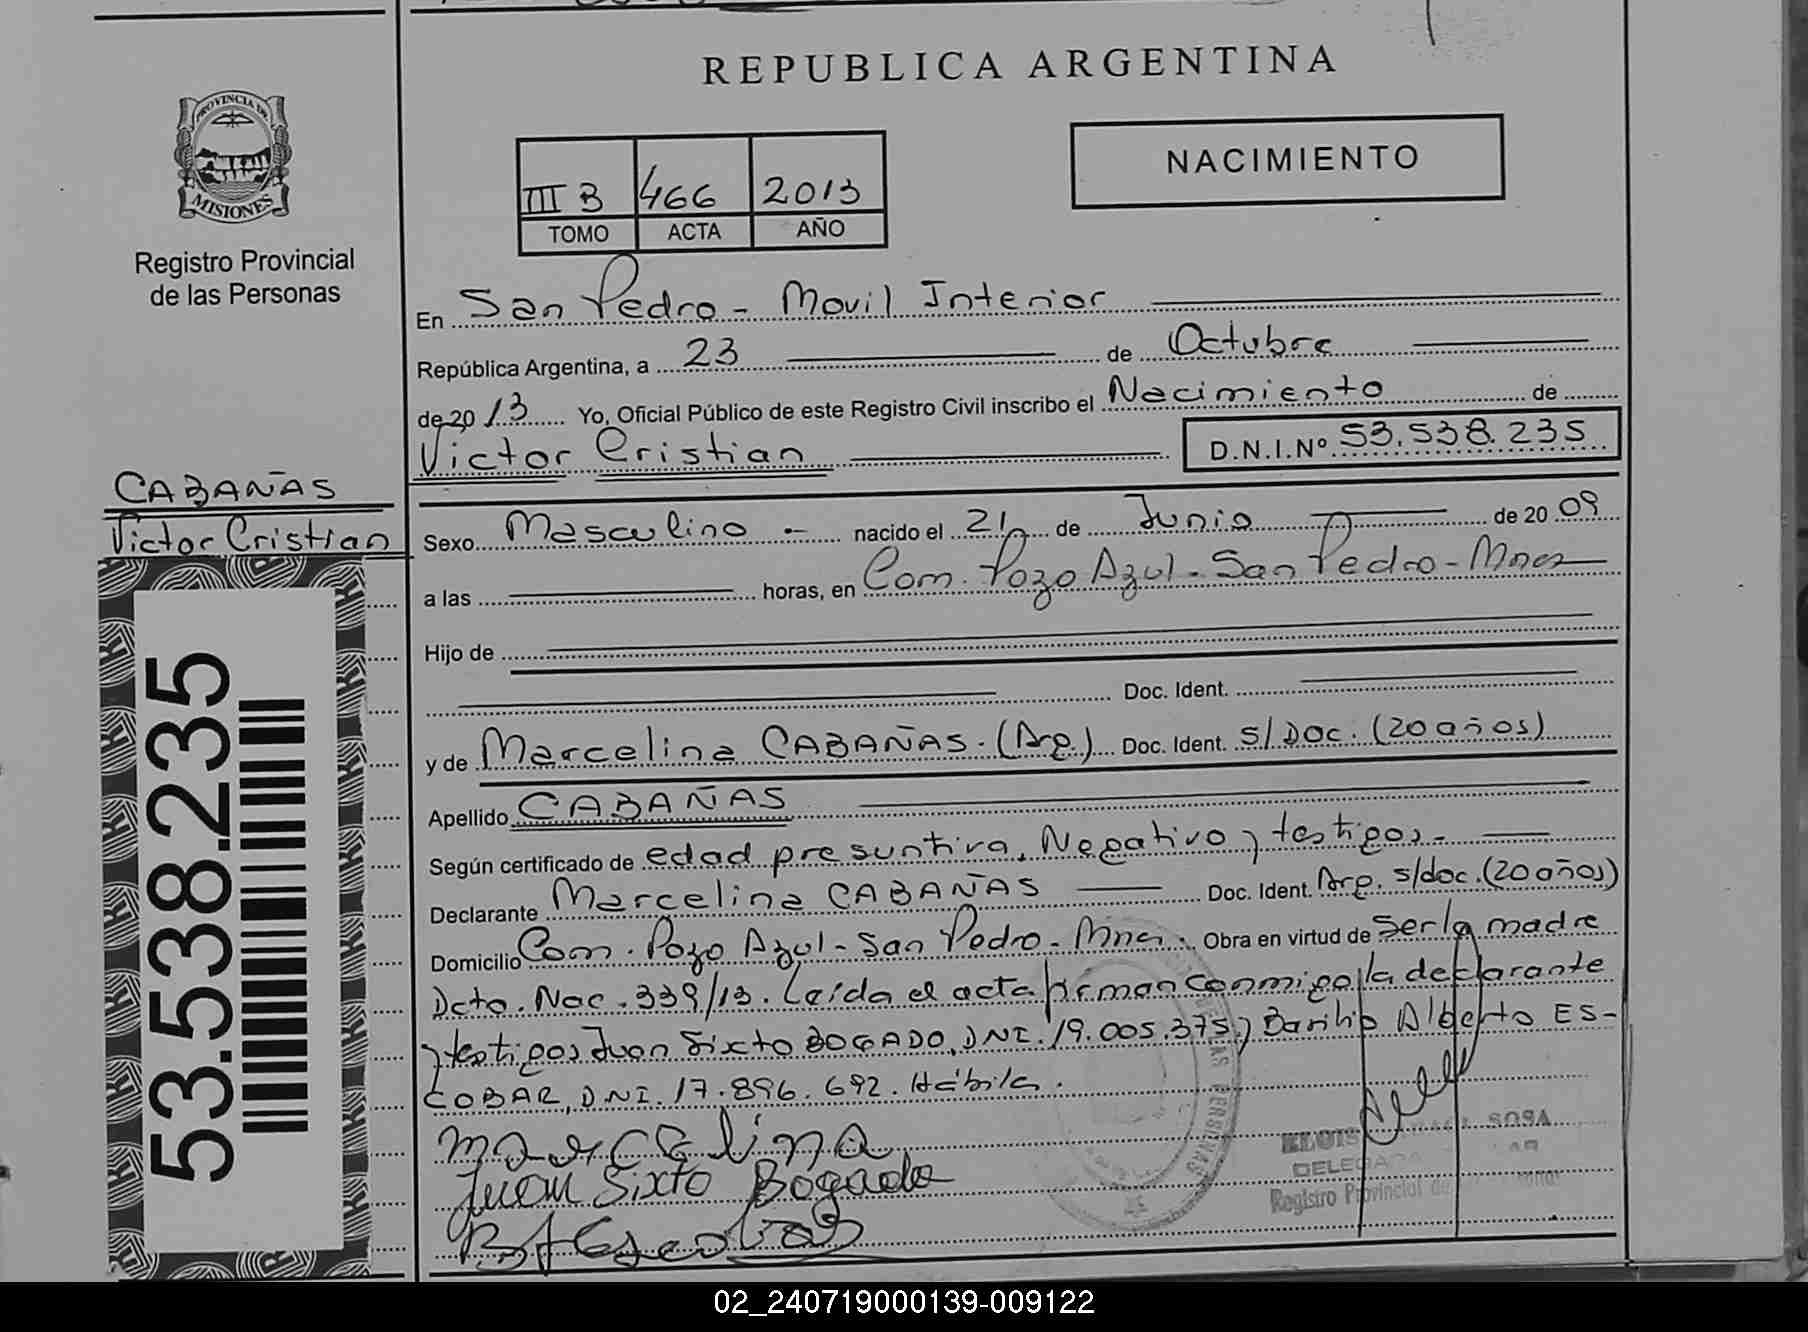 REPUBLICA ARGENTINA
PROVINCIA DE
MISIONES
Registro Provincial
de las Personas
NACIMIENTO
III B 466 2013
TOMO ACTA AÑO
En San Pedro - Movil Interior
República Argentina, a 23 de Octubre
de 2013 Yo, Oficial Público de este Registro Civil inscribo el Nacimiento de
Victor Cristian D.N.I.Nº 53.538.235
CABAÑAS
Victor Cristian
Sexo Masculino - nacido el 21 de Junio de 2009
a las horas, en Com. Pozo Azul - San Pedro - Mnes
Hijo de
Doc. Ident.
y de Marcelina CABAÑAS. (Arg.) Doc. Ident. s/Doc. (20 años)
Apellido CABAÑAS
Según certificado de edad presuntiva, Negativo y testigos.-
Declarante Marcelina CABAÑAS Doc. Ident. Arg. s/doc. (20 años)
Domicilio Com. Pozo Azul - San Pedro - Mnes. Obra en virtud de ser la madre
Dcto. Nac. 339/13. Leída el acta firman conmigo la declarante
y testigos Juan Sixto BOGADO, DNI. 19.005.375 y Basilio Alberto ES-
COBAR, DNI. 17.896.692. Hábiles.
Marcelina
Juan Sixto Bogado
B A Escobar
53.538.235
SOSA
Registro Provincial de
02_240719000139-009122